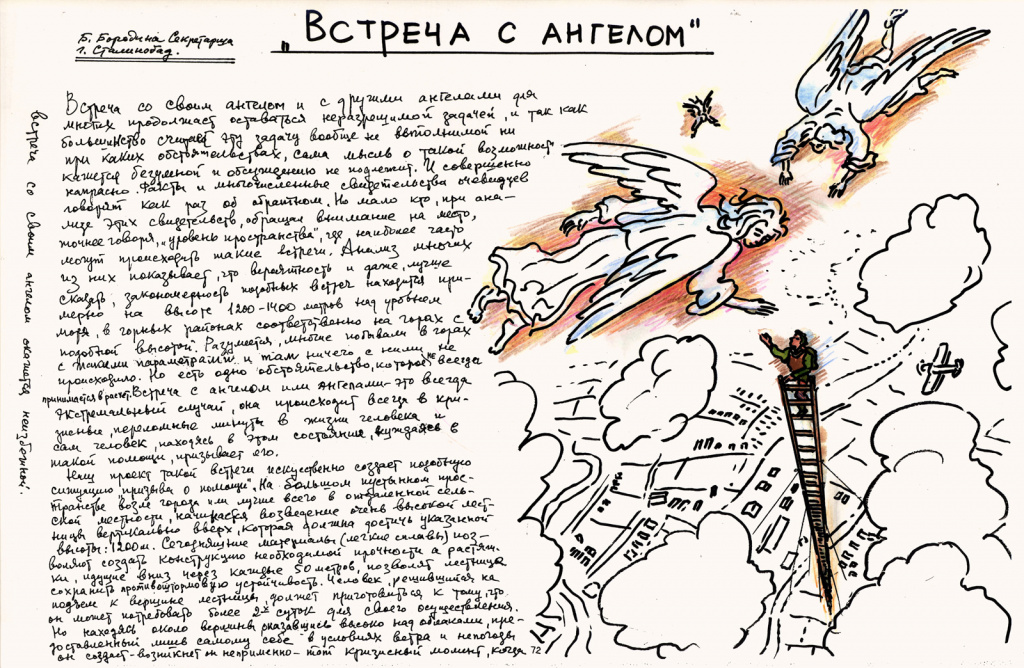 Б. Бородина Секретарша
г. Сталинобад.
„ВСТРЕЧА С АНГЕЛОМ"
Встреча со своим ангелом и с другими ангелами для
многих продолжает оставаться неразрешимой задачей, и так как
большинство считает эту задачу вообще не выполнимой ни
при каких обстоятельствах, сама мысль о такой возможност
кажется безумной и обсуждению не подлежит. И совершенно
напрасно. Факты и многочисленные свидетельства очевидцев
говорят как раз об обратном. Но мало кто, при ана-
лизе этих свидетельств, обращал внимание на место,
точнее говоря, „уровень пространства", где наиболее часто
могут происходить такие встречи. Анализ многих
из них показывает, что вероятность и даже, лучше
сказать, закономерность подобных встреч находится при-
мерно на высоте 1200-1400 метров над уровнем
моря, в горных районах соответственно на горах с
подобной высотой. Разумеется, многие побывали в горах
с такими параметрами, и там ничего с ними не
происходило. Но есть одно обстоятельство, которое не всегда
принимается в расчет. Встреча с ангелом или ангелами- это всегда
экстремальный случай, она происходит всегда в кри-
зисные, переломные минуты в жизни человека и
сам человек, находясь в этом состоянии, нуждаясь в
такой помощи, призывает его.
Наш проект такой встречи искуственно создает подобную
ситуацию „призыва о помощи". На большом пустынном прос-
транстве возле города или лучше всего в отдаленной сель-
ской местности, начинается возведение очень высокой лест-
ницы вертикально вверх, которая должна достичь указанной
высоты: 1200м. Сегодняшние материалы (легкие сплавы) поз-
воляют создать конструкцию необходимой прочности а растяж-
ки, идущие вниз через каждые 50 метров, позволят лестнице
сохранить противоштормовую устойчивость. Человек, решившийся на
подъем к вершине лестницы, должен приготовиться к тому, что
он может потребовать более 2х суток для своего осуществления.
Но находясь около вершины, оказавшись высоко над облаками, пре-
доставленный лишь самому себе в условиях ветра и непогоды
он создает-возникнет он непременно- тот кризисный момент, когда 72
встреча со своим ангелом окажется неизбежной.